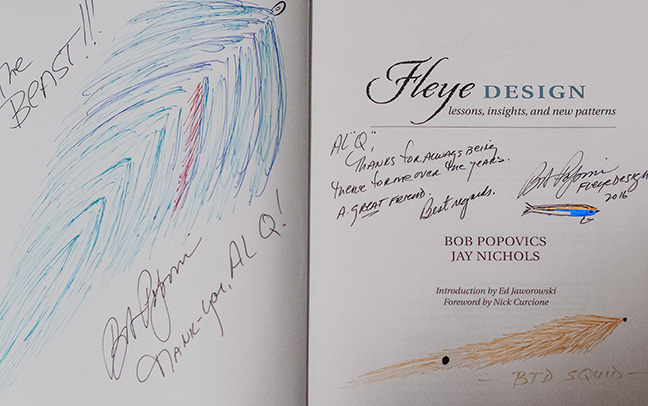 The
BEAST!!!
Bob Popovics
THANK-YOU, AL Q!
Fleye DESIGN
lessons, insights, and new patterns
AL "Q",
THANKS for ALWAYS BEING
there for me over the years.
A GREAT friend.
Best regards,
Bob Popovics
FLEYE DESIGN
2016
BOB POPOVICS
JAY NICHOLS
Introduction by Ed Jaworowski
Foreword by Nick Curcione
- BTD SQUID -